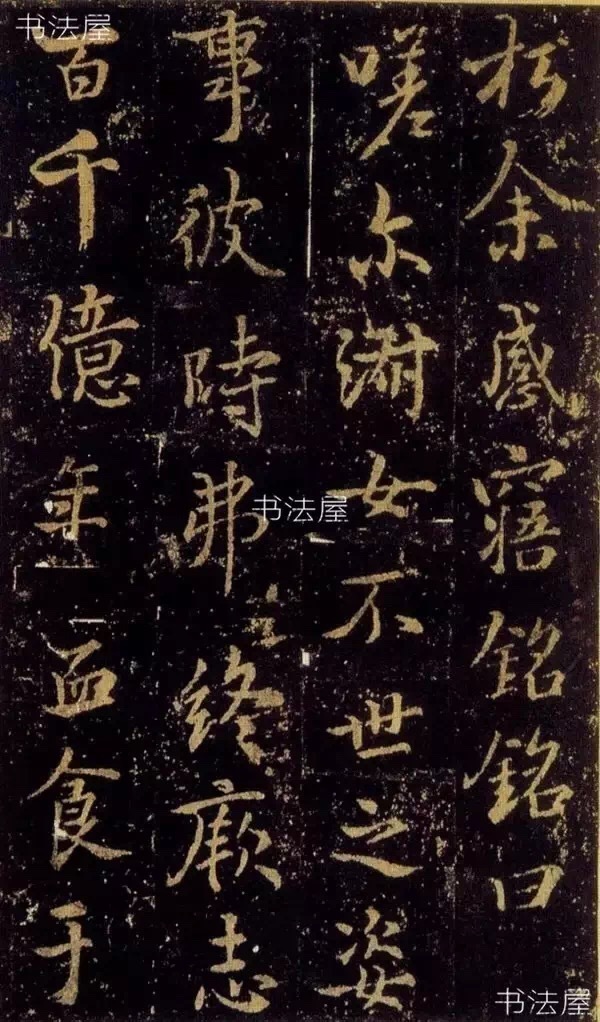 扵余感寤銘銘曰
嗟尔淑女不世之姿
事彼時弗終厥志
百千億年血食于
书法屋
书法屋
书法屋